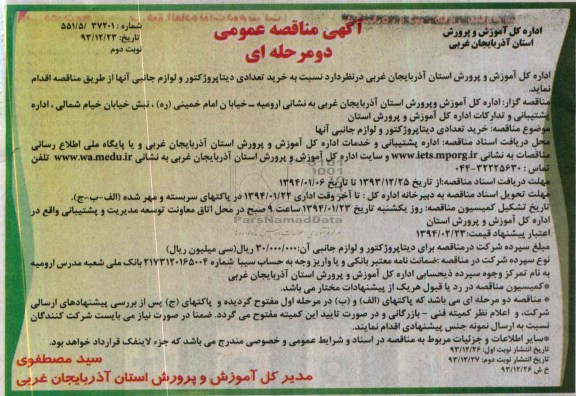 اداره کل آموزش و پرورش
استان آذربایجان غربی
آگهی مناقصه عمومی
دو مرحله ای
شماره : ۳۷۲۰۱ /۵۵۱/۵
تاریخ: ۹۳/۱۲/۲۳
نوبت دوم
اداره کل آموزش و پرورش استان آذربایجان غربی درنظردارد نسبت به خرید تعدادی دیتاپروژکتور و لوازم جانبی آنها از طریق مناقصه اقدام
نماید.
مناقصه گزار: اداره کل آموزش وپرورش استان آذربایجان غربی به نشانی ارومیه ــ خیابان امام خمینی (ره) ، نبش خیابان خیام شمالی ، اداره
پشتیبانی و تدارکات اداره کل آموزش و پرورش استان
موضوع مناقصه: خرید تعدادی دیتاپروژکتور و لوازم جانبی آنها
محل دریافت اسناد مناقصه: اداره پشتیبانی و خدمات اداره کل آموزش و پرورش استان آذربایجان غربی و یا پایگاه ملی اطلاع رسانی
مناقصات به نشانی www.iets.mporg.ir و سایت اداره کل آموزش و پرورش استان آذربایجان غربی به نشانی www.wa.medu.ir تلفن
تماس : ۳۲۲۲۵۶۳۰-۰۴۴
مهلت دریافت اسناد مناقصه:از تاریخ ۱۳۹۳/۱۲/۲۵ تا تاریخ ۱۳۹۴/۰۱/۰۶
مهلت تحویل اسناد مناقصه به دبیرخانه اداره کل : تا آخر وقت اداری ۱۳۹۴/۰۱/۲۲ در پاکتهای سربسته و مهر شده (الف-ب-ج).
تاریخ تشکیل کمیسیون مناقصه: روز یکشنبه تاریخ ۱۳۹۴/۰۱/۲۳ ساعت ۹ صبح در محل اتاق معاونت توسعه مدیریت و پشتیبانی واقع در
اداره کل آموزش و پرورش استان
اعتبار پیشنهاد قیمت: ۱۳۹۴/۰۲/۲۳
مبلغ سپرده شرکت درمناقصه برای دیتاپروژکتور و لوازم جانبی آن:۳۰/۰۰۰/۰۰۰ ریال(سی میلیون ریال)
نوع سپرده شرکت در مناقصه :ضمانت نامه معتبر بانکی و یا واریز وجه به حساب سیبا شماره ۲۱۷۳۱۲۰۱۶۵۰۰۴ بانک ملی شعبه مدرس ارومیه
به نام تمرکز وجوه سپرده ذیحسابی اداره کل آموزش و پرورش استان آذربایجان غربی
*کمیسیون مناقصه در رد یا قبول هریک از پیشنهادات مختار می باشد.
* مناقصه دو مرحله ای می باشد که پاکتهای (الف) و (ب) در مرحله اول مفتوح گردیده و پاکتهای (ج) پس از بررسی پیشنهادهای ارسالی
شرکت، و اعلام نظر کمیته فنی - بازرگانی و در صورت تایید این کمیته مفتوح می گردد. ضمنا در صورت نیاز می بایست شرکت کنندگان
نسبت به ارسال نمونه جنس پیشنهادی اقدام نمایند.
*سایر اطلاعات و جزئیات مربوط به مناقصه در اسناد و شرایط عمومی و خصوصی مندرج می باشد که جزء لاینفک قرارداد خواهد بود.
تاریخ انتشار نوبت اول: ۹۳/۱۲/۲۶
تاریخ انتشار نوبت دوم: ۹۳/۱۲/۲۷
خ ش ۹۳/۱۲/۲۶
سید مصطفوی
مدیر کل آموزش و پرورش استان آذربایجان غربی
ParsNamadData